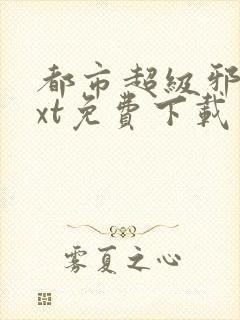 都市超级邪
xt免費下載
雾夏之心